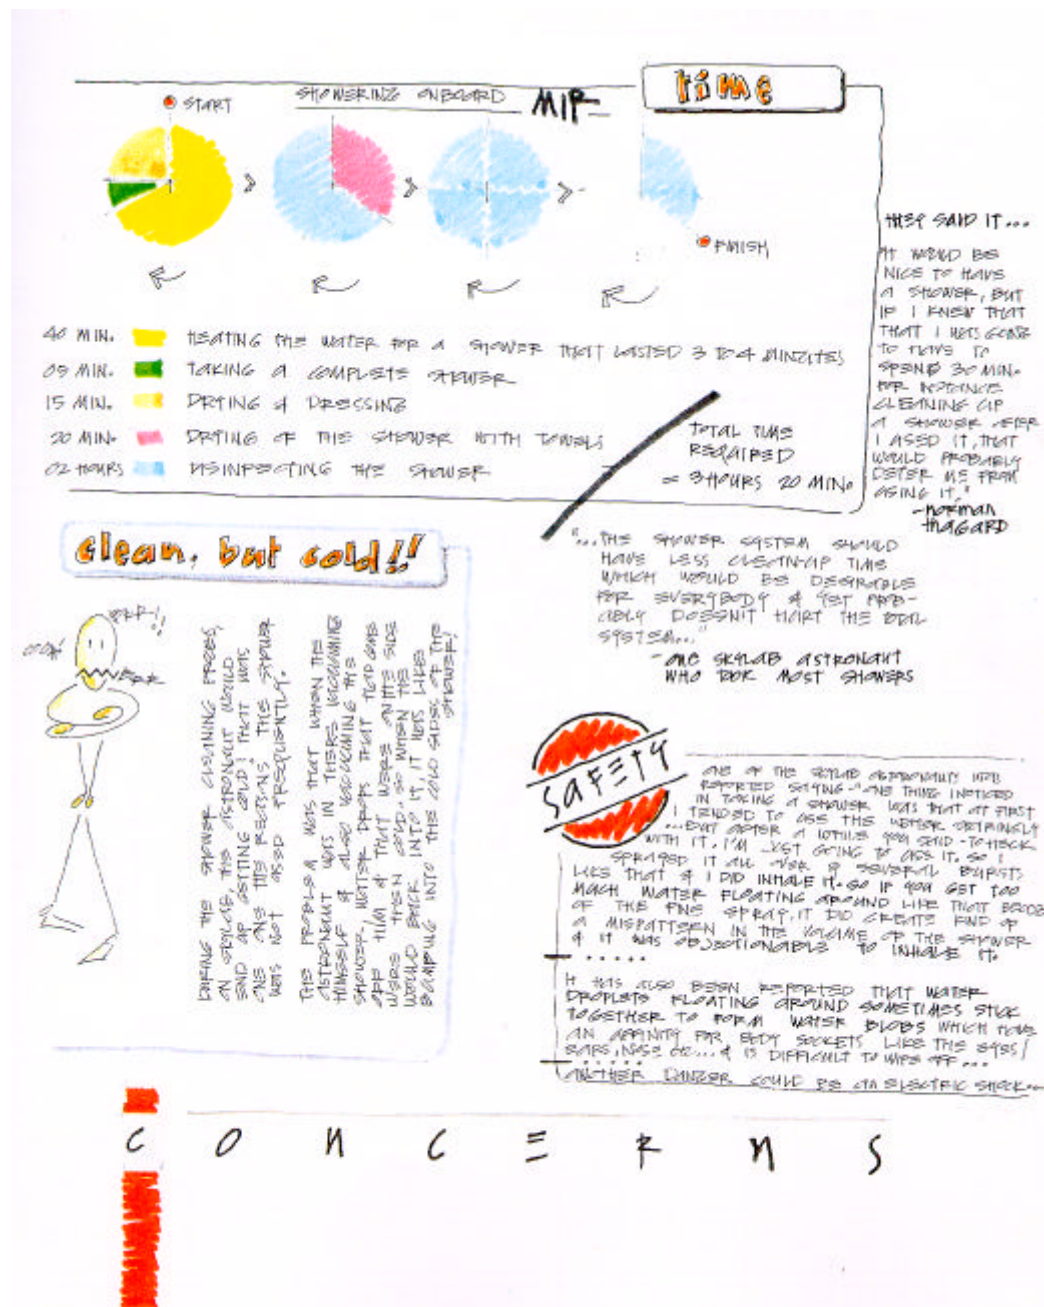 time
START
SHOWERING ONBOARD MIR
FINISH
40 MIN. HEATING THE WATER FOR A SHOWER THAT LASTED 3 TO 4 MINUTES
05 MIN. TAKING A COMPLETE SHOWER
15 MIN. DRYING & DRESSING
20 MIN. DRYING OF THE SHOWER WITH TOWELS
02 HOURS DISINFECTING THE SHOWER
TOTAL TIME
REQUIRED
= 3 HOURS 20 MIN.
THEY SAID IT...
"IT WOULD BE
NICE TO HAVE
A SHOWER, BUT
IF I KNEW THAT
THAT I WAS GOING
TO HAVE TO
SPEND 30 MIN.
FOR INSTANCE
CLEANING UP
A SHOWER AFTER
I USED IT, THAT
WOULD PROBABLY
DETER ME FROM
USING IT."
-NORMAN
THAGARD
"...THE SHOWER SYSTEM SHOULD
HAVE LESS CLEAN-UP TIME
WHICH WOULD BE DESIRABLE
FOR EVERYBODY & YET PROB-
ABLY DOESN'T HURT THE
SYSTEM..."
- ONE SKYLAB ASTRONAUT
WHO TOOK MOST SHOWERS
clean, but cold!!
BRR-!!
BRRR
DURING THE SHOWER CLEANING PROCESS,
ON SKYLAB, THE ASTRONAUT WOULD
END UP GETTING COLD! THAT WAS
ONE OF THE REASONS THE SHOWER
WAS NOT USED FREQUENTLY.
THE PROBLEM WAS THAT WHEN THE
ASTRONAUT WAS IN THERE VACUUMING
HIMSELF & ALSO VACUUMING THE
SHOWER, WATER DROPS THAT HAD COME
OFF HIM & THAT WERE ON THE SIDE
WERE THEN COLD. SO WHEN THE
WOULD BACK INTO IT, IT WAS LIKE
BUMPING INTO THE COLD SIDES OF THE
SHOWER!
SAFETY
ONE OF THE SKYLAB ASTRONAUTS WAS
REPORTED SAYING - "ONE THING I NOTICED
IN TAKING A SHOWER WAS THAT AT FIRST
I TENDED TO USE THE WATER SPARINGLY
...BUT AFTER A WHILE YOU SAID - TO HECK
WITH IT, I'M JUST GOING TO USE IT. SO I
SPRAYED IT ALL OVER & SEVERAL BURSTS
LIKE THAT & I DID INHALE IT. SO IF YOU GET TOO
MUCH WATER FLOATING AROUND LIKE THAT
OF THE FINE SPRAY, IT DID CREATE KIND OF
A MIST PATTERN IN THE VOLUME OF THE SHOWER
& IT WAS OBJECTIONABLE TO INHALE IT.
IT HAS ALSO BEEN REPORTED THAT WATER
DROPLETS FLOATING AROUND SOMETIMES STICK
TOGETHER TO FORM WATER BLOBS WHICH HAVE
AN AFFINITY FOR BODY SOCKETS LIKE THE EYES/
EARS, NOSE ETC...& IS DIFFICULT TO WIPE OFF...
ANOTHER DANGER COULD BE AN ELECTRIC SHOCK...
CONCERNS